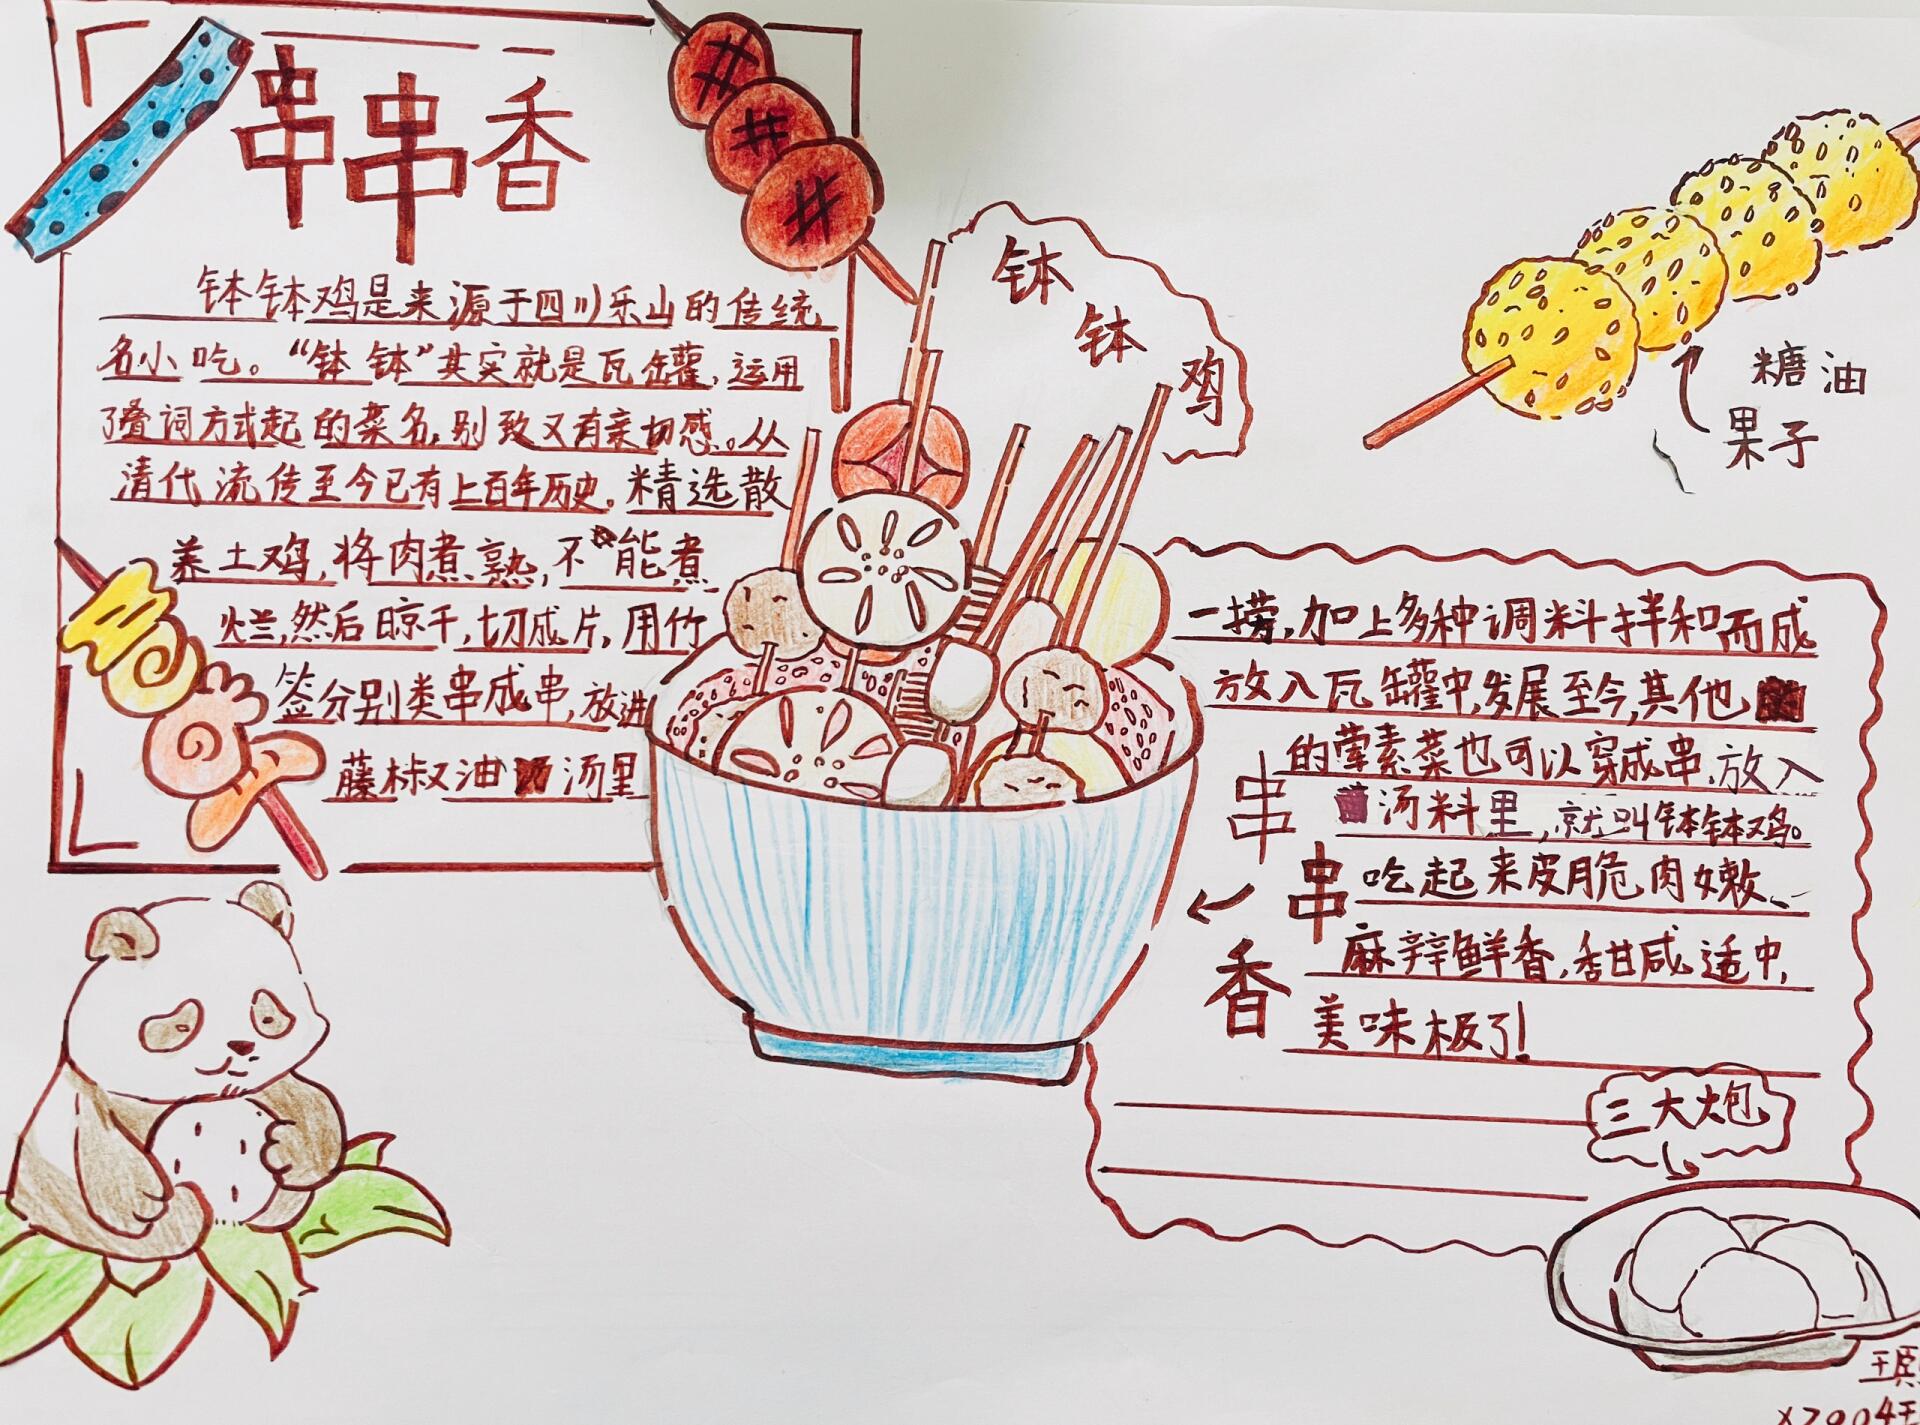 串串香
钵钵鸡是来源于四川乐山的传统
名小吃。“钵钵”其实就是瓦罐,运用
了叠词方式起的菜名,别致又有亲切感。从
清代流传至今已有上百年历史。精选散
养土鸡,将肉煮熟,不能煮
烂,然后晾干,切成片,用竹
签分别类串成串,放进
藤椒油汤里
钵钵鸡
糖油
果子
一捞,加上多种调料拌和而成
放入瓦罐中,发展至今,其他
的荤素菜也可以穿成串,放入
汤料里,就叫钵钵鸡。
吃起来皮脆肉嫩、
麻辣鲜香,甜咸适中,
美味极了!
串串香
三大炮